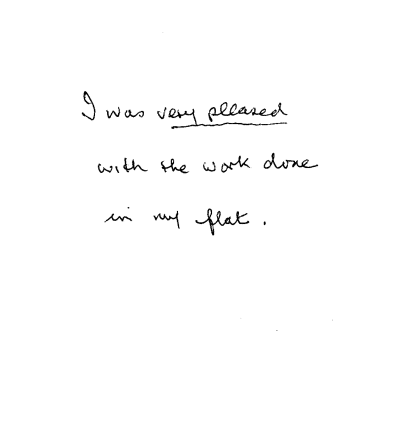 I was very pleased
with the work done
in my flat.